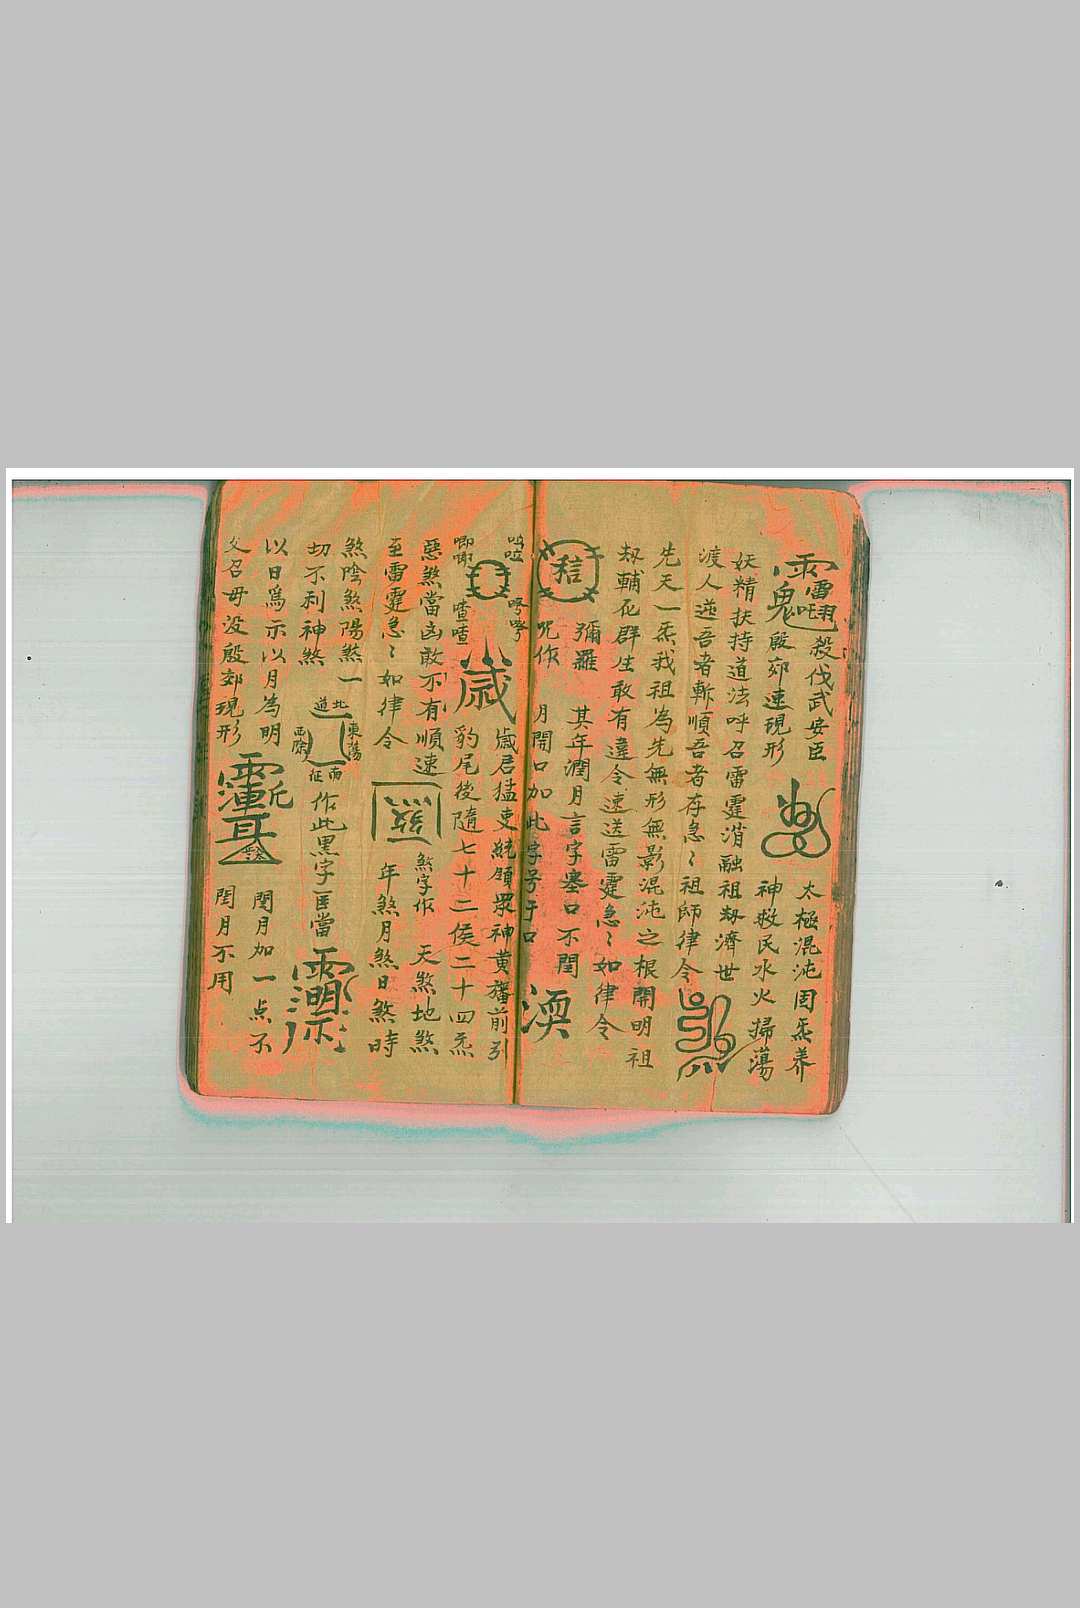 殺伐武安臣
殷郊速現形
太極混沌固炁養
神救民水火掃蕩
妖精扶持道法呼召雷霆消融祖劫濟世
渡人逆吾者斬順吾者存急〻祖師律令
先天一炁我祖為先無形無影混沌之根開明祖
劫輔化群生敢有違令速送雷霆急〻如律令
彌羅
其年潤月言字塞口不閏
咒作
月開口加此字号于口
歲
歲君猛吏統領眾神黄旛前引
豹尾後隨七十二侯二十四炁
惡煞當凶敢不有順速
至雷霆急〻如律令
煞
煞字作
天煞地煞
年煞月煞日煞時
煞陰煞陽煞一
切不利神煞
北道
東蕩
南征
西除
作此黑字匡當
以日為示以月為明
父召母没殷郊現形
閏月加一点不
閏月不用